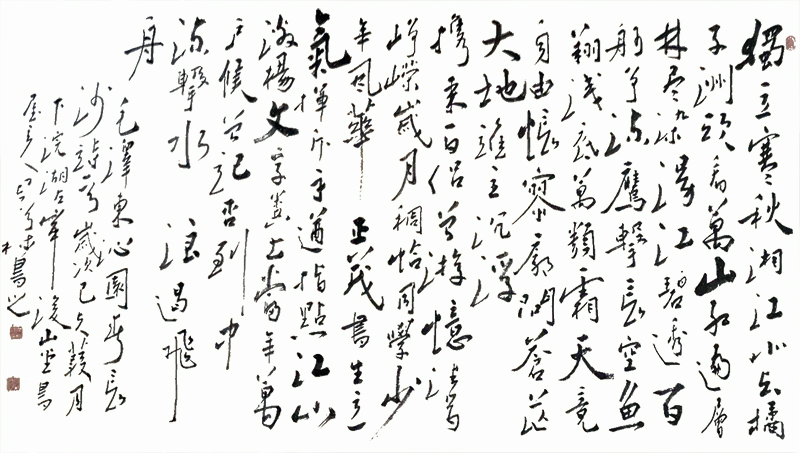 獨立寒秋湘江北去橘
子洲頭看萬山紅遍層
林尽染漫江碧透百
舸爭流鷹擊長空魚
翔淺底萬類霜天競
自由悵寥廓問蒼茫
大地誰主沉浮
攜來百侶曾游憶往昔
崢嶸歲月稠恰同學少
年風華正茂書生意
氣揮斥方遒指點江山
激揚文字糞土當年萬
戶侯曾記否到中
流擊水浪遏飛
舟
毛澤東沁園春長
沙歲次己亥月
下浣湖山堂書
書之